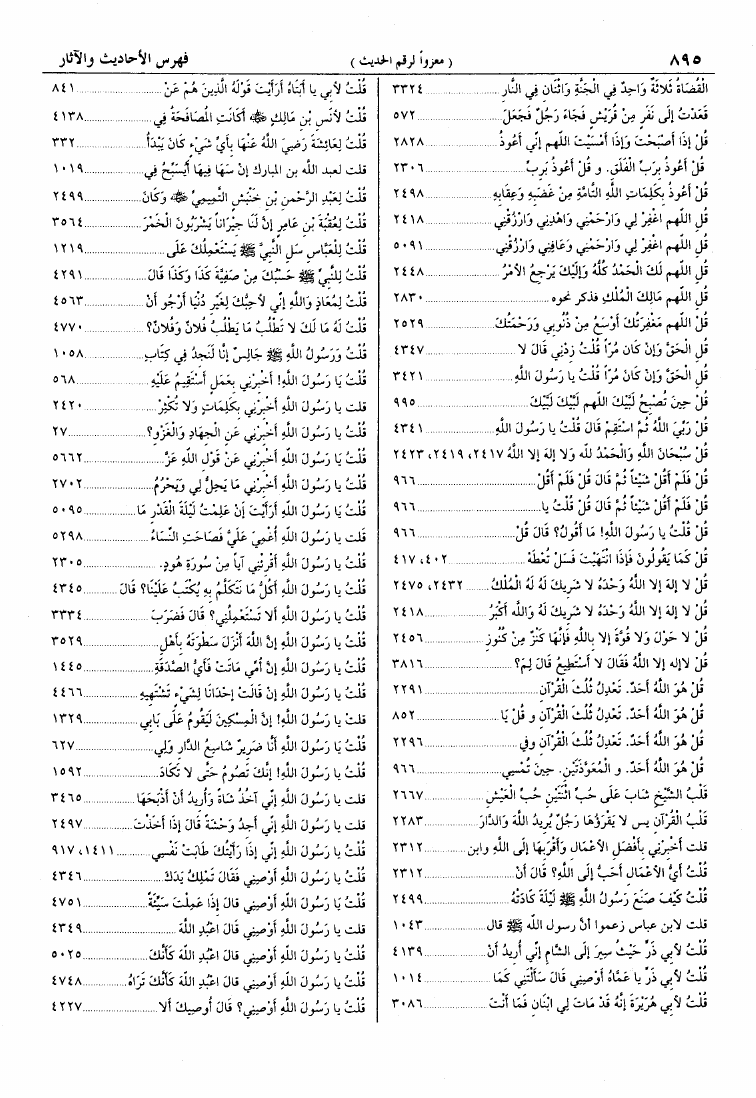 ٨٩٥
( معزواً لرقم الحديث )
فهرس الأحاديث والآثار
القُضَاةُ ثَلاثَةٌ وَاحِدٌ فِي الجَنَّةِ وَاثْنَانِ فِي النَّارِ ٣٣٢٤
قَعَدْتُ إِلَى نَفَرٍ مِنْ قُرَيْشٍ فَجَاءَ رَجُلٌ فَجَعَلَ ٥٧٢
قُلْ إِذَا أَصْبَحْتَ وَإِذَا أَمْسَيْتَ اللهم إِنِّي أَعُوذُ ٢٨٢٨
قُلْ أَعُوذُ بِرَبِّ الْفَلَقِ. و قُلْ أَعُوذُ بَرِبِّ ٢٣٠٦
قُلْ أَعُوذُ بِكَلِمَاتِ اللَّهِ التَّامَّةِ مِنْ غَضَبِهِ وَعِقَابِهِ ٢٤٩٨
قُلِ اللَّهم اغْفِرْ لِي وَارْحَمْنِي وَاهْدِنِي وَارْزُقْنِي ٢٤١٨
قُلِ اللهم اغْفِرْ لِي وَارْحَمْنِي وَعَافِنِي وَارْزُقْنِي ٥٠٩١
قُلِ اللهم لَكَ الْحَمْدُ كُلُّهُ وَإِلَيْكَ يَرْجِعُ الأَمْرُ ٢٤٤٨
قُلِ اللهم مَالِكَ الْمُلْكِ فذكر نحوه ٢٨٣٠
قُلِ اللهم مَغْفِرَتُكَ أَوْسَعُ مِنْ ذُنُوبِي وَرَحْمَتُكَ ٢٥٢٩
قُلِ الْحَقَّ وَإِنْ كَانَ مُرّاً قُلْتُ زِدْنِي قَالَ لا ٤٣٤٧
قُلِ الْحَقَّ وَإِنْ كَانَ مُرّاً قُلْتُ يا رَسُولَ اللَّهِ ٣٤٢١
قُلْ حِينَ تُصْبِحُ لَبَّيْكَ اللهم لَبَّيْكَ لَبَّيْكَ ٩٩٥
قُلْ رَبِّيَ اللَّهُ ثُمَّ اسْتَقِمْ قَالَ قُلْتُ يا رَسُولَ اللَّهِ ٤٣٤١
قُلْ سُبْحَانَ اللَّهِ وَالْحَمْدُ لله وَلا إله إلا اللَّهُ ٢٤١٧، ٢٤١٩، ٢٤٢٣
قُلْ فَلَمْ أَقُلْ شَيْئاً ثُمَّ قَالَ قُلْ فَلَمْ أَقُلْ ٩٦٦
قُلْ فَلَمْ أَقُلْ شَيْئاً ثُمَّ قَالَ قُلْ قُلْتُ يا ٩٦٦
قُلْ قُلْتُ يا رَسُولَ اللَّهِ! مَا أَقُولُ؟ قَالَ قُلْ ٩٦٦
قُلْ كَمَا يَقُولُونَ فَإِذَا انْتَهَيْتَ فَسَلْ تُعْطَهْ ٤٠٢، ٤١٧
قُلْ لا إله إلا اللَّهُ وَحْدَهُ لا شَرِيكَ لَهُ لَهُ الْمُلْكُ ٢٤٣٢، ٢٤٧٥
قُلْ لا إله إلا اللَّهُ وَحْدَهُ لا شَرِيكَ لَهُ وَاللَّه أَكْبَرُ ٢٤١٨
قُلْ لا حَوْلَ وَلا قُوَّةَ إِلا بِاللَّهِ فَإِنَّهَا كَنْزٌ مِنْ كُنُوزِ ٢٤٥٦
قُلْ لاإله إلا اللَّهُ فَقَالَ لا أَسْتَطِيعُ قَالَ لِمَ؟ ٣٨١٦
قُلْ هُوَ اللَّهُ أَحَدٌ. تَعْدِلُ ثُلُثَ الْقُرْآنِ ٢٢٩١
قُلْ هُوَ اللَّهُ أَحَدٌ. تَعْدِلُ ثُلُثَ الْقُرْآنِ و قُلْ يَا ٨٥٢
قُلْ هُوَ اللَّهُ أَحَدٌ. تَعْدِلُ ثُلُثَ الْقُرْآنِ وفي ٢٢٩٦
قُلْ هُوَ اللَّهُ أَحَدٌ. و الْمُعَوِّذَتَيْنِ. حِينَ تُمْسِي ٩٦٦
قَلْبُ الشَّيْخِ شَابَ عَلَى حُبِّ اثْنَتَيْنِ حُبِّ الْعَيْشِ ٢٦٦٧
قَلْبُ الْقُرْآنِ يس لا يَقْرَؤُهَا رَجُلٌ يُرِيدُ اللَّهَ وَالدَّارَ ٢٢٨٣
قلت أَخْبِرْنِي بِأَفْضَلِ الأَعْمَالِ وَأَقْرَبِهَا إِلَى اللَّهِ وابن ٢٣١٢
قُلْتُ أَيُّ الأَعْمَالِ أَحَبُّ إِلَى اللَّهِ؟ قَالَ أَنْ ٢٣١٢
قُلْتُ كَيْفَ صَنَعَ رَسُولُ اللَّهِ ﷺ لَيْلَةَ كَادَتْهُ ٢٤٩٩
قلت لابن عباس زعموا أنَّ رسول الله ﷺ قال ١٠٤٣
قُلْتُ لأَبِي ذَرٍّ حَيْثُ سِيرَ إِلَى الشَّامِ إِنِّي أُرِيدُ أَنْ ٤١٣٩
قُلْتُ لأَبِي ذَرٍّ يا عَمَّاهُ أَوْصِنِي قَالَ سَأَلْتَنِي كَمَا ١٠١٤
قُلْتُ لأَبِي هُرَيْرَةَ إِنَّهُ قَدْ مَاتَ لِي ابْنَانِ فَمَا أَنْتَ ٣٠٨٦
قُلْتُ لأَبِي يا أَبَتَاهُ أَرَأَيْتَ قَوْلَهُ الَّذِينَ هُمْ عَنْ ٨٤١
قُلْتُ لأَنَسِ بْنِ مَالِكٍ ﷺ أَكَانَتِ الْمُصَافَحَةُ فِي ٤١٣٨
قُلْتُ لِعَائِشَةَ رَضِيَ اللَّهُ عَنْهَا بِأَيِّ شَيْءٍ كَانَ يَبْدَأُ ٣٣٢
قلت لعبد الله بن المبارك إِنْ سَهَا فِيهَا أَيُسَبِّحُ فِي ١٠١٩
قُلْتُ لِعَبْدِ الرَّحْمنِ بْنِ خَنْبَشٍ التَّمِيمِيِّ ﷺ وَكَانَ ٢٤٩٩
قُلْتُ لِعُقْبَةَ بْنِ عَامِرٍ إِنَّ لَنَا جِيرَاناً يَشْرَبُونَ الْخَمْرَ ٣٥٦٤
قُلْتُ لِلْعَبَّاسِ سَلِ النَّبِيَّ ﷺ يَسْتَعْمِلُكَ عَلَى ١٢١٩
قُلْتُ لِلنَّبِيِّ ﷺ حَسْبُكَ مِنْ صَفِيَّةَ كَذَا وَكَذَا قَالَ ٤٢٩١
قُلْتُ لِمُعَاذٍ وَاللَّهِ إِنِّي لأُحِبُّكَ لِغَيْرِ دُنْيَا أَرْجُو أَنْ ٤٥٦٣
قُلْتُ لَهُ مَا لَكَ لا تَطْلُبُ مَا يَطْلُبُ فُلانٌ وَفُلانٌ؟ ٤٧٧٠
قُلْتُ وَرَسُولُ اللَّهِ ﷺ جَالِسٌ إِنَّا لَنَجِدُ فِي كِتَابِ ١٠٥٨
قُلْتُ يَا رَسُولَ اللَّهِ! أَخْبِرْنِي بِعَمَلٍ أَسْتَقِيمُ عَلَيْهِ ٥٦٨
قلت يا رَسُولَ اللَّهِ أَخْبِرْنِي بِكَلِمَاتٍ وَلا تُكْثِرْ ٢٤٢٠
قُلْتُ يا رَسُولَ اللَّهِ أَخْبِرْنِي عَنِ الْجِهَادِ وَالْغَزْوِ؟ ٢٧
قُلْتُ يَا رَسُولَ اللَّهِ أَخْبِرْنِي عَنْ قَوْلِ اللَّهِ عَزَّ ٥٦٦٢
قُلْتُ يا رَسُولَ اللَّهِ أَخْبِرْنِي مَا يَحِلُّ لِي وَيَحْرُمُ ٢٧٠٢
قُلْتُ يا رَسُولَ اللَّهِ أَرَأَيْتَ إِنْ عَلِمْتُ لَيْلَةَ الْقَدْرِ مَا ٥٠٩٥
قلت يا رَسُولَ اللَّهِ أُغْمِيَ عَلَيَّ فَصَاحَتِ النِّسَاءُ ٥٢٩٨
قُلْتُ يا رَسُولَ اللَّهِ أَقْرِئْنِي آياً مِنْ سُورَةِ هُودٍ ٢٣٠٥
قُلْتُ يا رَسُولَ اللَّهِ أَكُلُّ مَا نَتَكَلَّمُ بِهِ يُكْتَبُ عَلَيْنَا؟ قَالَ ٤٣٤٥
قُلْتُ يا رَسُولَ اللَّهِ أَلا تَسْتَعْمِلُنِي؟ قَالَ فَضَرَبَ ٣٣٣٤
قُلْتُ يا رَسُولَ اللَّهِ إِنَّ اللَّهَ أَنْزَلَ سَطْوَتَهُ بِأَهْلِ ٣٥٢٩
قُلْتُ يا رَسُولَ اللَّهِ إِنَّ أُمِّي مَاتَتْ فَأَيُّ الصَّدَقَةِ ١٤٤٥
قُلْتُ يا رَسُولَ اللَّهِ إِنْ قَالَتْ إِحْدَانَا لِشَيْءٍ تَشْتَهِيهِ ٤٤٦٦
قلت يا رَسُولَ اللَّهِ! إِنَّ الْمِسْكِينَ لَيَقُومُ عَلَى بَابِي ١٣٢٩
قُلْتُ يا رَسُولَ اللَّهِ أَنَا ضَرِيرٌ شَاسِعُ الدَّارِ وَلِي ٦٢٧
قُلْتُ يا رَسُولَ اللَّهِ! إِنَّكَ تَصُومُ حَتَّى لا تَكَادَ ١٥٩٢
قلت يا رَسُولَ اللَّهِ إِنِّي آخُذُ شَاةً وَأُرِيدُ أَنْ أَذْبَحَهَا ٣٤٦٥
قلت يا رَسُولَ اللَّهِ إِنِّي أَجِدُ وَحْشَةً قَالَ إِذَا أَخَذْتَ ٢٤٩٧
قُلْتُ يا رَسُولَ اللَّهِ إِنِّي إِذَا رَأَيْتُكَ طَابَتْ نَفْسِي ١٤١١، ٩١٧
قُلْتُ يا رَسُولَ اللَّهِ أَوْصِنِي فَقَالَ تَمْلِكُ يَدَكَ ٤٣٤٦
قُلْتُ يَا رَسُولَ اللَّهِ أَوْصِنِي قَالَ إِذَا عَمِلْتَ سَيِّئَةً ٤٧٥١
قُلْتُ يا رَسُولَ اللَّهِ أَوْصِنِي قَالَ اعْبُدِ اللَّهَ ٤٣٤٩
قُلْتُ يا رَسُولَ اللَّهِ أَوْصِنِي قَالَ اعْبُدِ اللَّهَ كَأَنَّكَ ٥٠٢٥
قُلْتُ يا رَسُولَ اللَّهِ أَوْصِنِي قال اعْبُدِ اللَّهَ كَأَنَّكَ تَرَاهُ ٤٧٤٨
قُلْتُ يا رَسُولَ اللَّهِ أَوْصِنِي؟ قَالَ أُوصِيكَ أَلا ٤٢٢٧